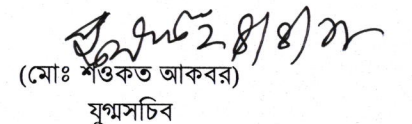 (মোঃ শওকত আকবর)
যুগ্মসচিব